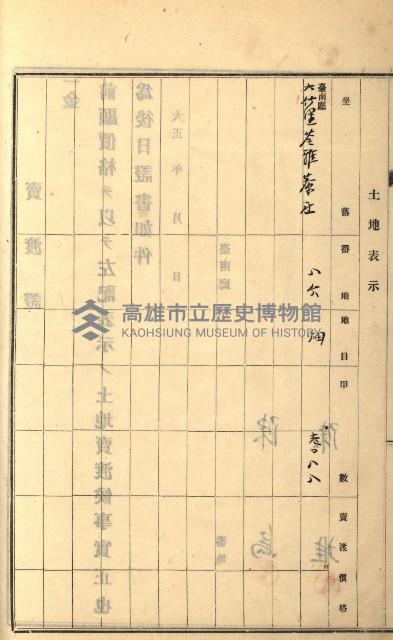 土地表示
坐落
番地
地目
甲數
賣渡價格
臺南廳
大竹里苓雅藔庄
八六
畑
賣渡證
一金
前顯價格ヲ以テ左記表示ノ土地賣渡候事實正也
為後日證書如件
大正 年 月 日
臺南廳
番地
高雄市立歷史博物館
KAOHSIUNG MUSEUM OF HISTORY